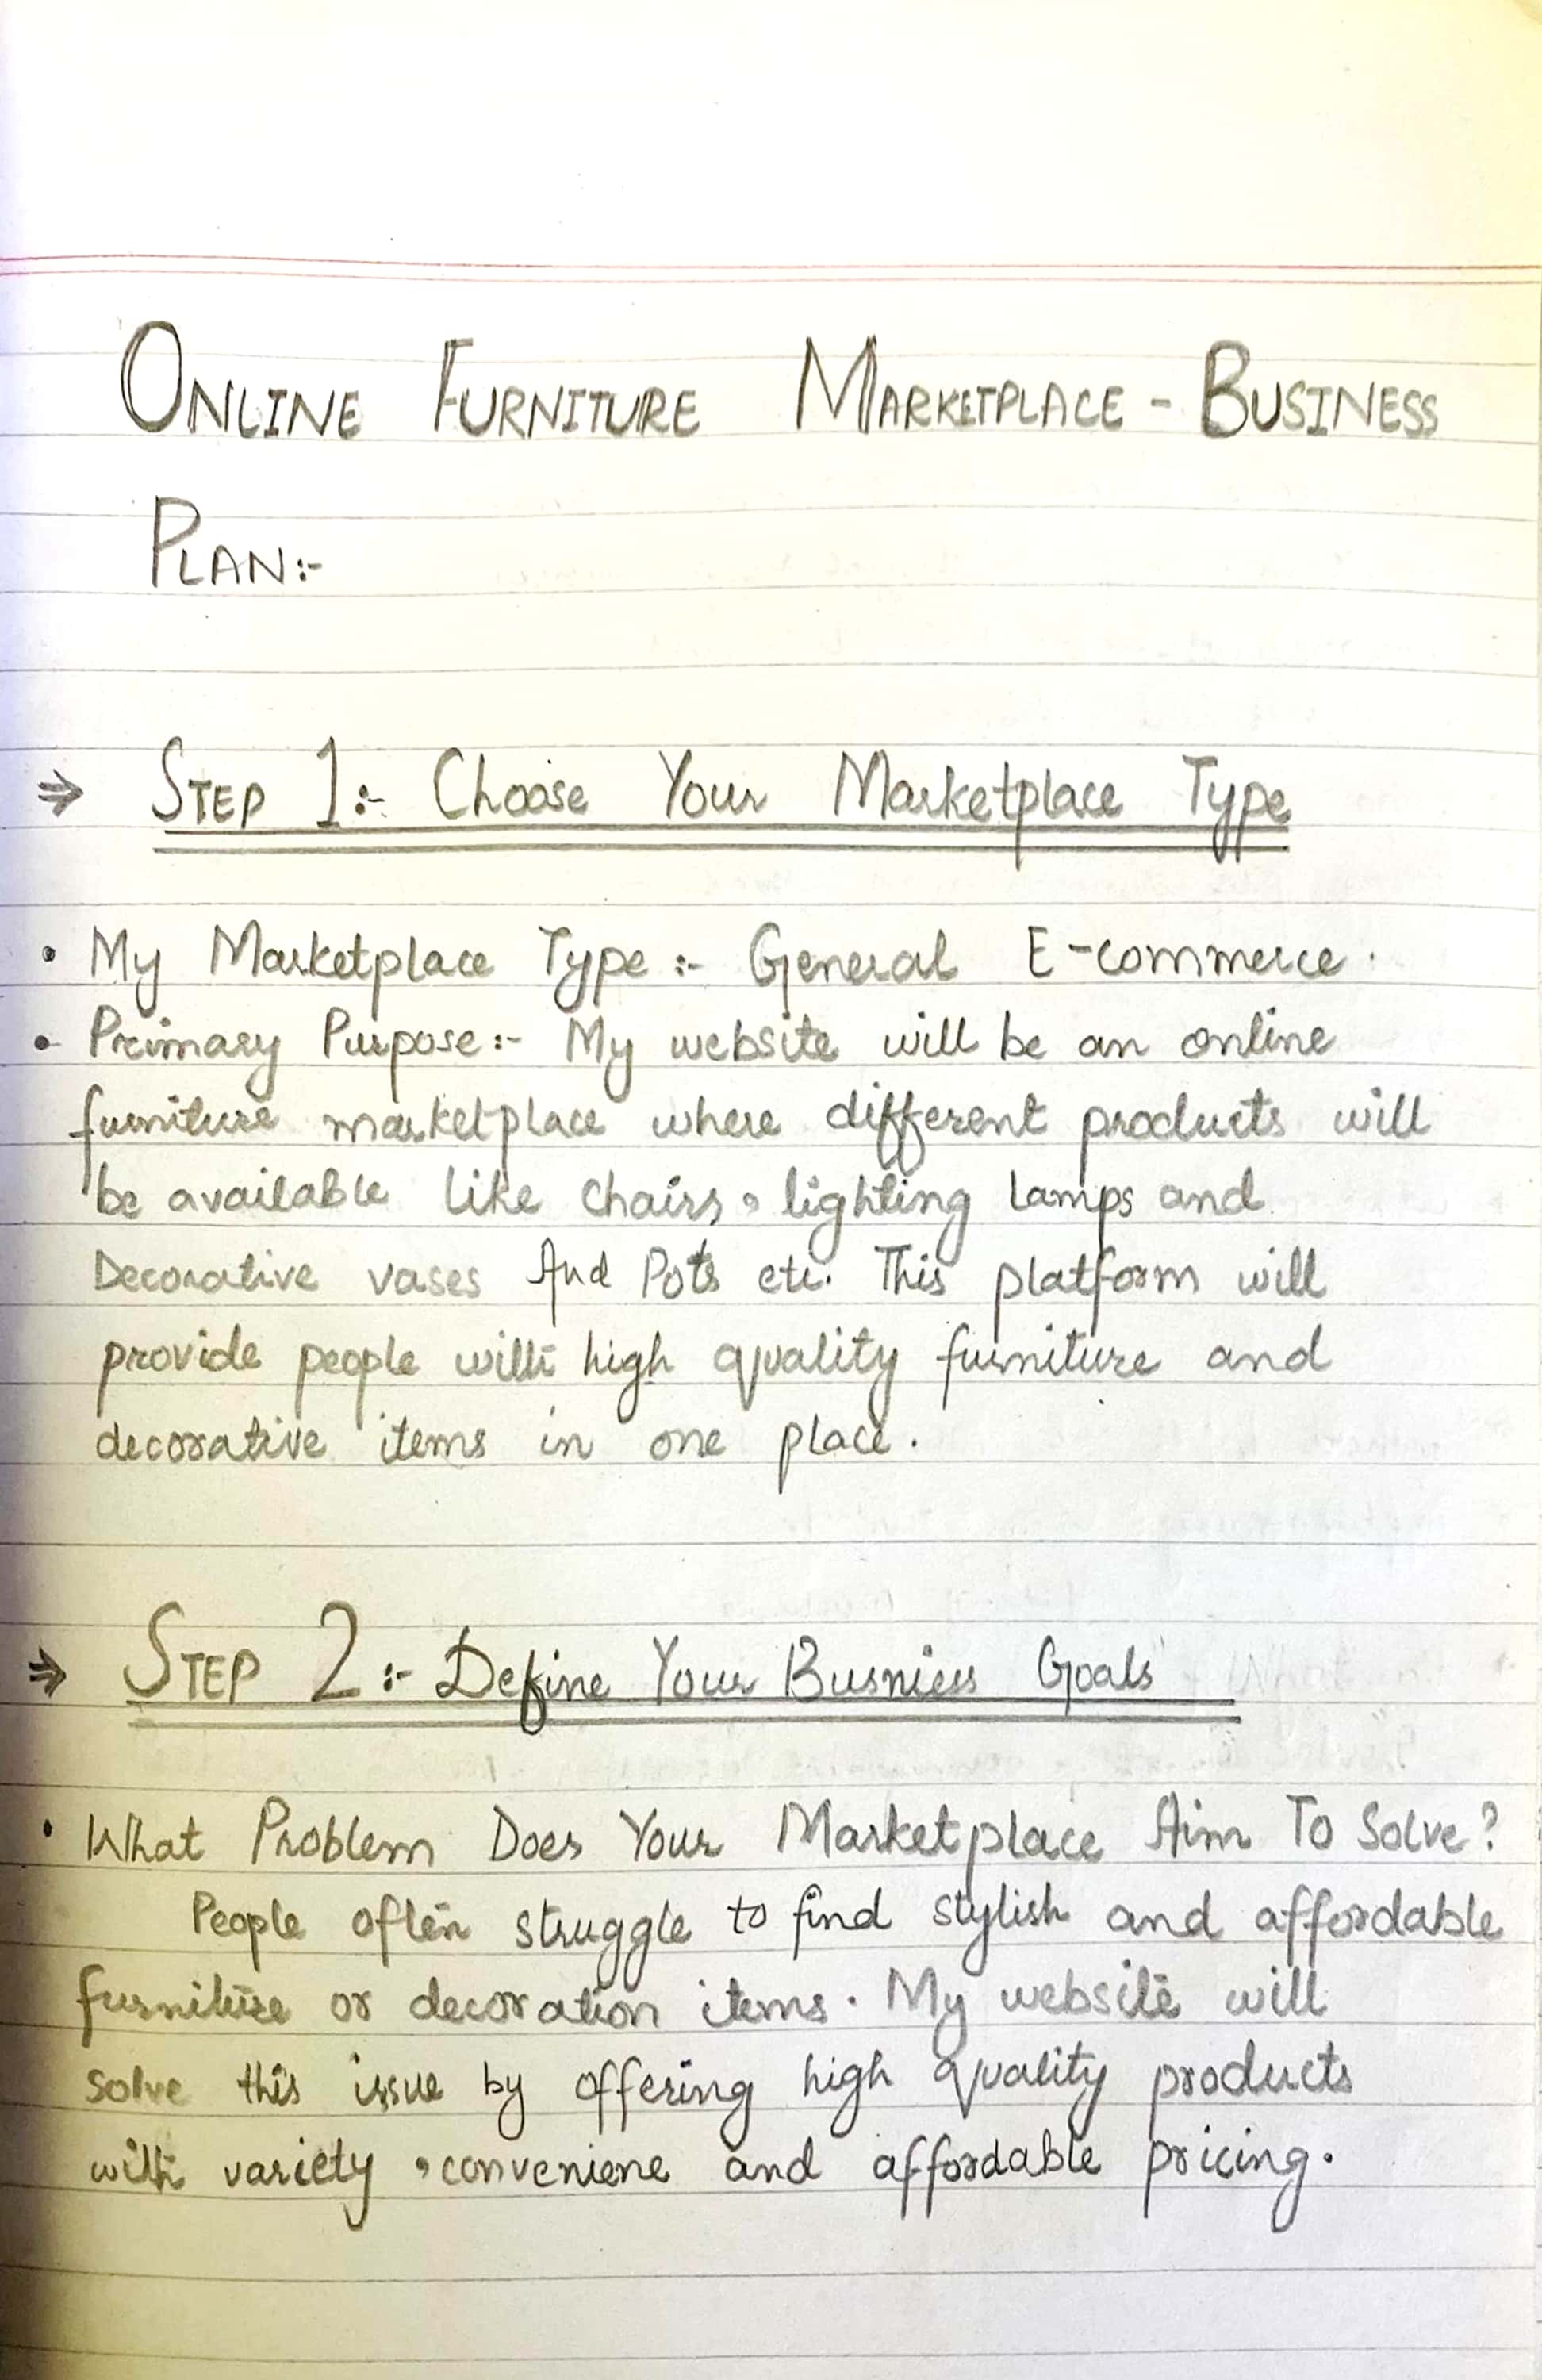 ONLINE FURNITURE MARKETPLACE - BUSINESS
PLAN:-
⇒ STEP 1:- Choose Your Marketplace Type
• My Marketplace Type :- General E-commerce.
• Primary Purpose:- My website will be an online
furniture marketplace where different products will
be available like chairs, lighting lamps and
Decorative vases And Pots etc. This platform will
provide people with high quality furniture and
decorative items in one place.
⇒ STEP 2:- Define Your Busniess Goals
• What Problem Does Your Marketplace Aim To Solve?
People often struggle to find stylish and affordable
furniture or decoration items. My website will
solve this issue by offering high quality products
with variety, conveniene and affordable pricing.